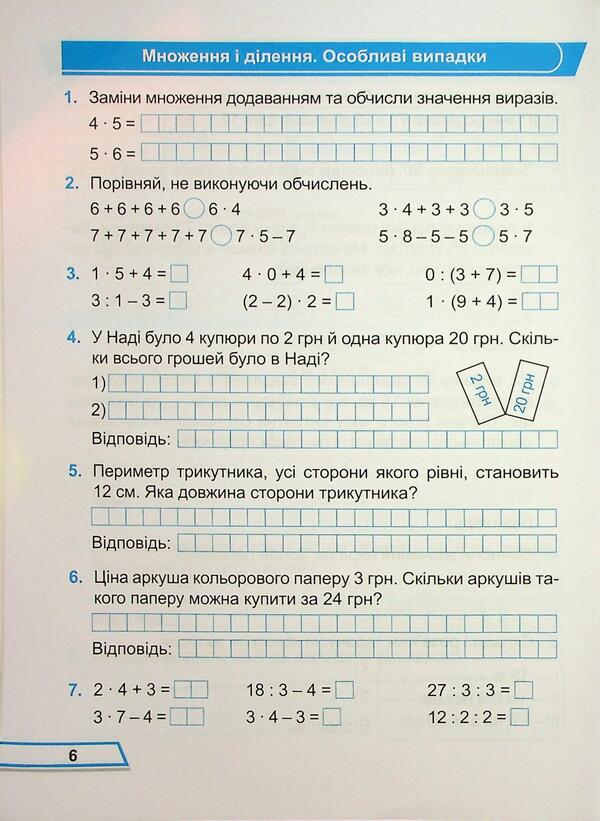 Множення і ділення. Особливі випадки
1. Заміни множення додаванням та обчисли значення виразів.
4 · 5 =
5 · 6 =
2. Порівняй, не виконуючи обчислень.
6 + 6 + 6 + 6 ◯ 6 · 4    3 · 4 + 3 + 3 ◯ 3 · 5
7 + 7 + 7 + 7 + 7 ◯ 7 · 5 – 7    5 · 8 – 5 – 5 ◯ 5 · 7
3. 1 · 5 + 4 =    4 · 0 + 4 =    0 : (3 + 7) =
3 : 1 – 3 =    (2 – 2) · 2 =    1 · (9 + 4) =
4. У Наді було 4 купюри по 2 грн й одна купюра 20 грн. Скіль-
ки всього грошей було в Наді?
1)
2)
2 грн
20 грн
Відповідь:
5. Периметр трикутника, усі сторони якого рівні, становить
12 см. Яка довжина сторони трикутника?
Відповідь:
6. Ціна аркуша кольорового паперу 3 грн. Скільки аркушів та-
кого паперу можна купити за 24 грн?
Відповідь:
7. 2 · 4 + 3 =    18 : 3 – 4 =    27 : 3 : 3 =
3 · 7 – 4 =    3 · 4 – 3 =    12 : 2 : 2 =
6